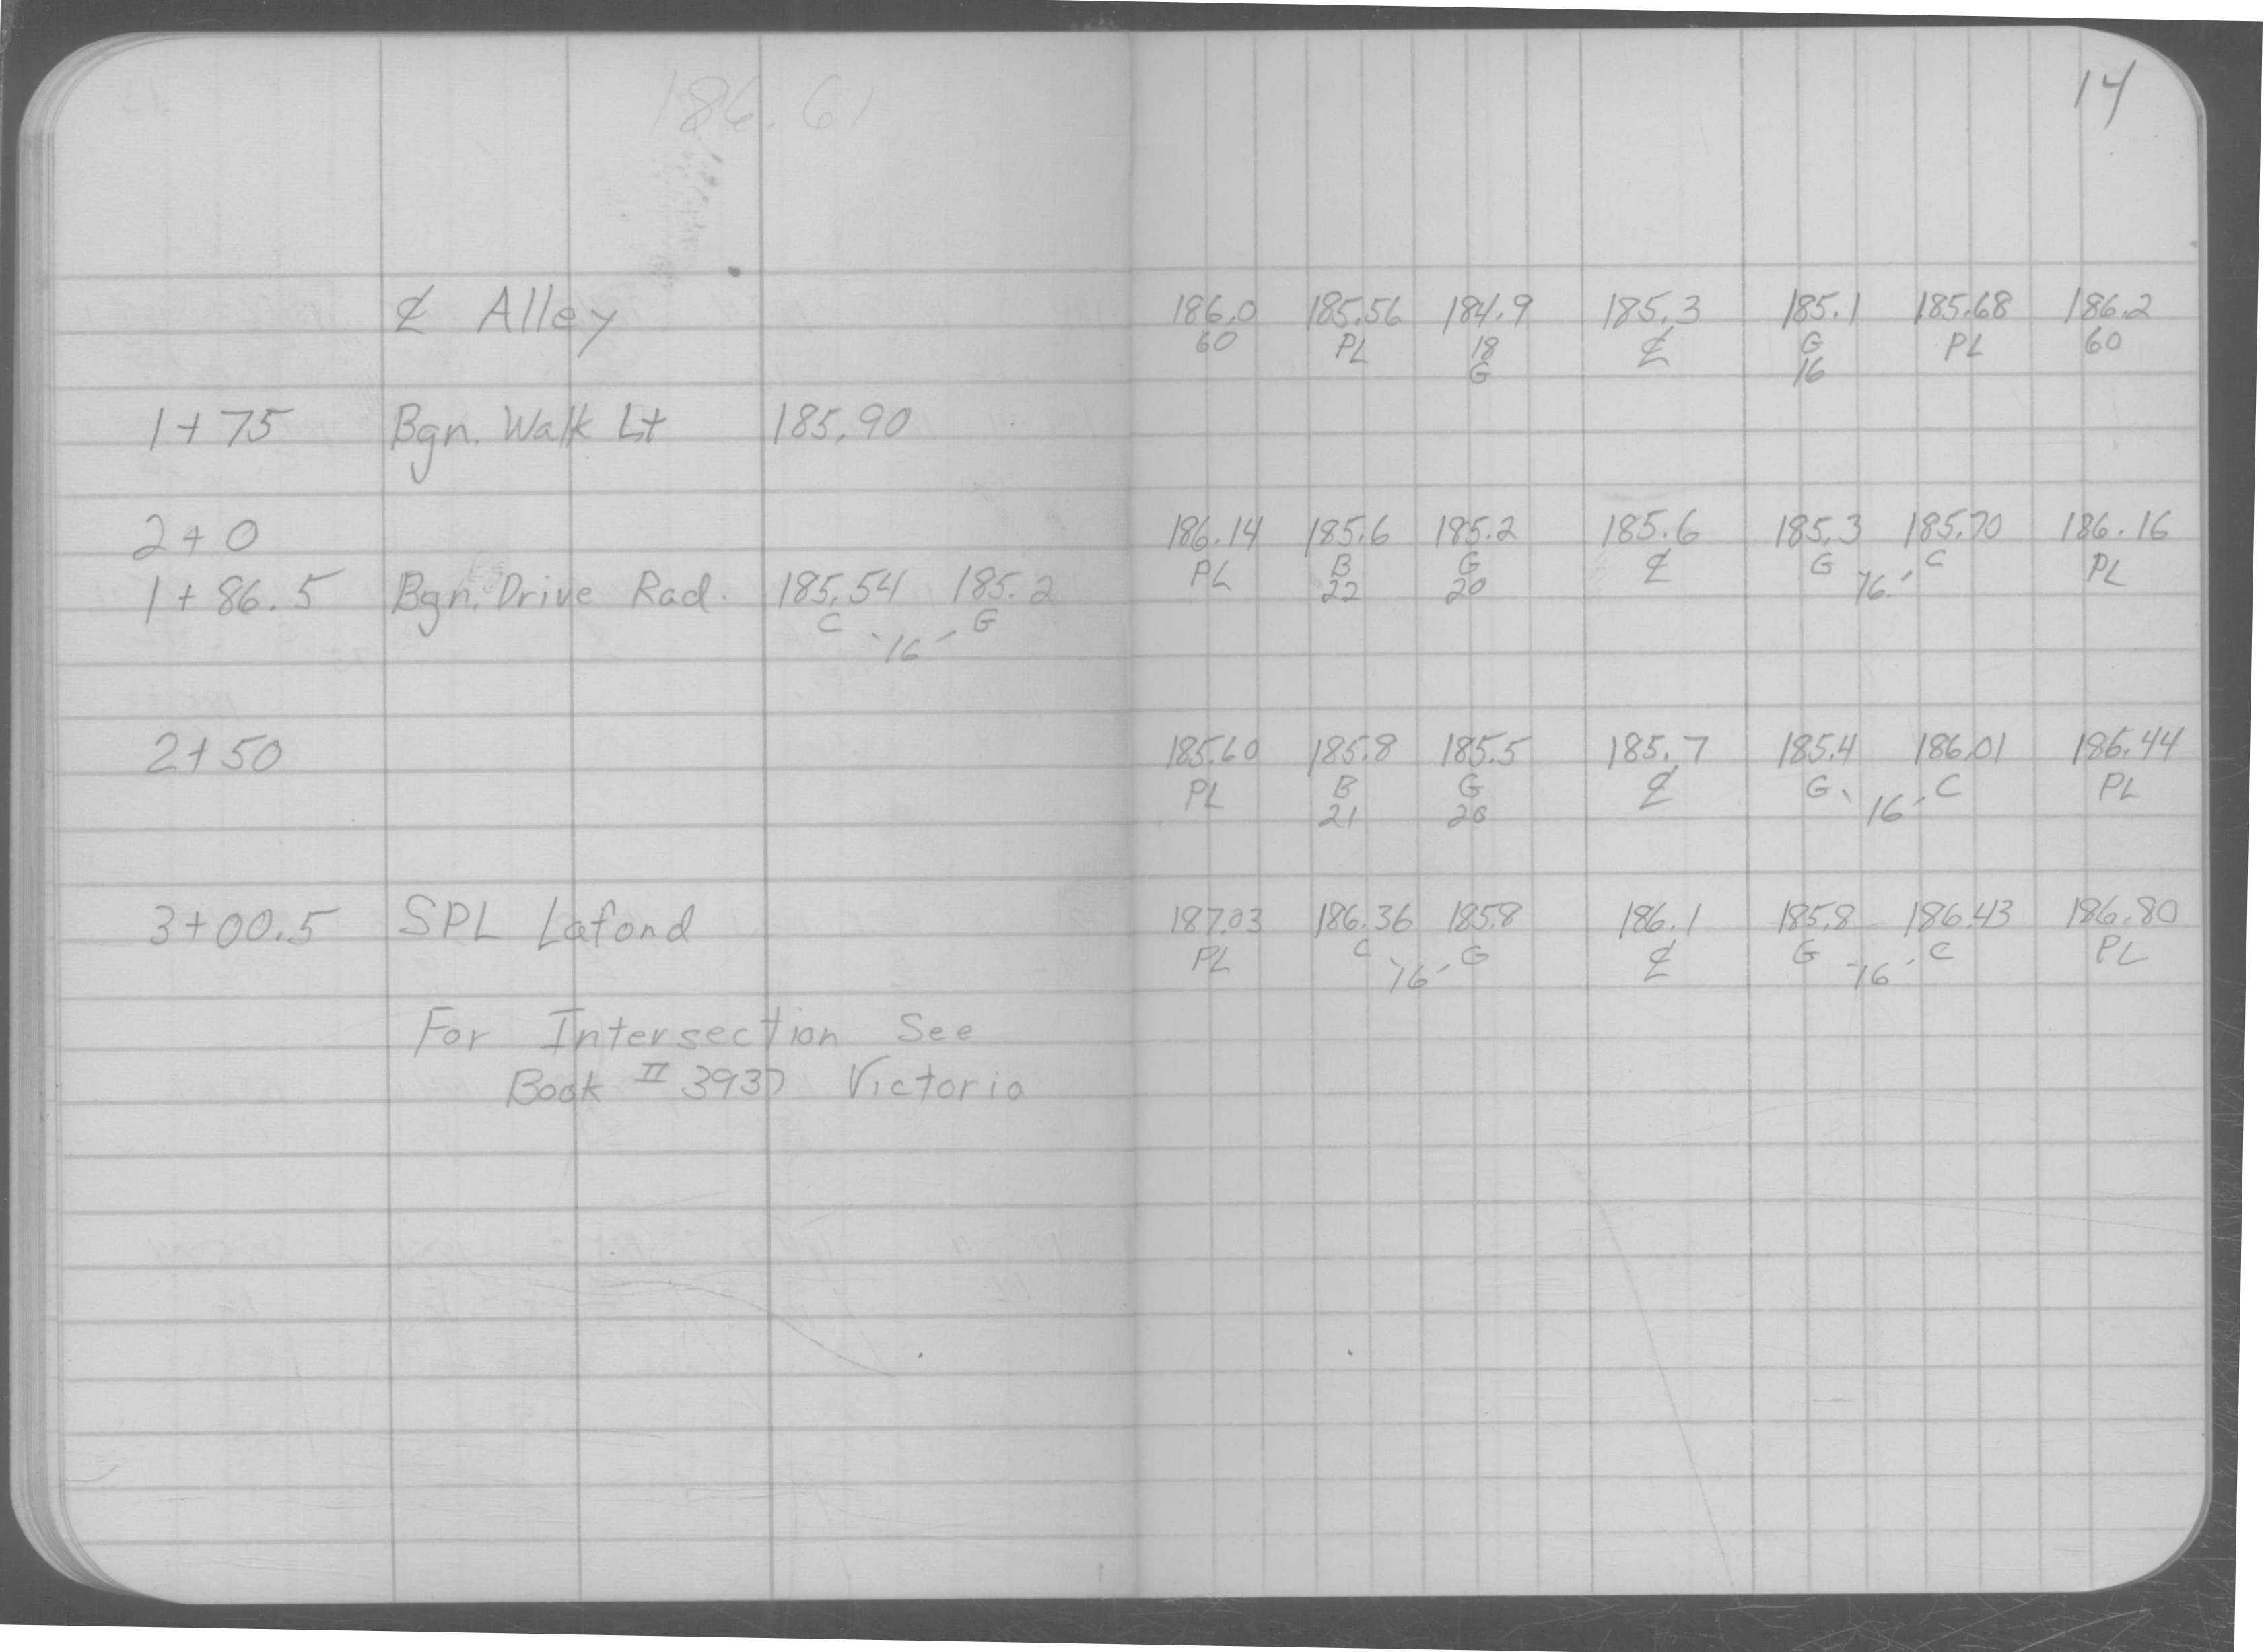 186.61
14
℄ Alley 186.0 185.56 184.9 185.3 185.1 185.68 186.2
60 PL 18 ℄ G PL 60
G 16
1+75 Bgn. Walk Lt 185.90
2+0 186.14 185.6 185.2 185.6 185.3 185.70 186.16
PL B G ℄ G C PL
22 20 16
1+86.5 Bgn. Drive Rad. 185.54 185.2
C G
16
2+50 185.60 185.8 185.5 185.7 185.4 186.01 186.44
PL B G ℄ G C PL
21 20 16
3+00.5 SPL Lafond 187.03 186.36 185.8 186.1 185.8 186.43 186.80
PL C G ℄ G C PL
16 16
For Intersection See
Book II 3937 Victoria